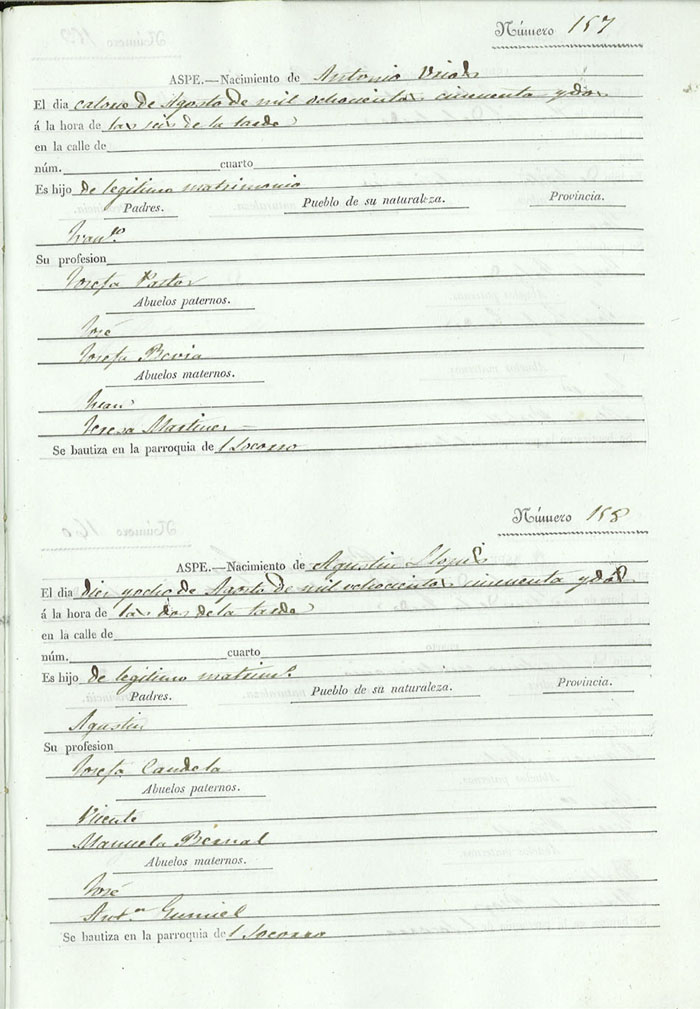 Número 157
ASPE.—Nacimiento de Antonio Urios
El dia catorce de Agosto de mil ochocientos cincuenta y dos
á la hora de las seis de la tarde
en la calle de
núm. cuarto
Es hijo de legitimo matrimonio
Padres. Pueblo de su naturaleza. Provincia.
Franco
Su profesion
Josefa Pastor
Abuelos paternos.
José
Josefa Bevia
Abuelos maternos.
Juan
Teresa Martinez
Se bautiza en la parroquia de l Socorro
Número 158
ASPE.—Nacimiento de Agustin Llopis
El dia diez y ocho de Agosto de mil ochocientos cincuenta y dos
á la hora de las dos de la tarde
en la calle de
núm. cuarto
Es hijo de legitimo matrimo
Padres. Pueblo de su naturaleza. Provincia.
Agustin
Su profesion
Josefa Candela
Abuelos paternos.
Vicente
Manuela Bernal
Abuelos maternos.
José
Anta
Se bautiza en la parroquia de l Socorro